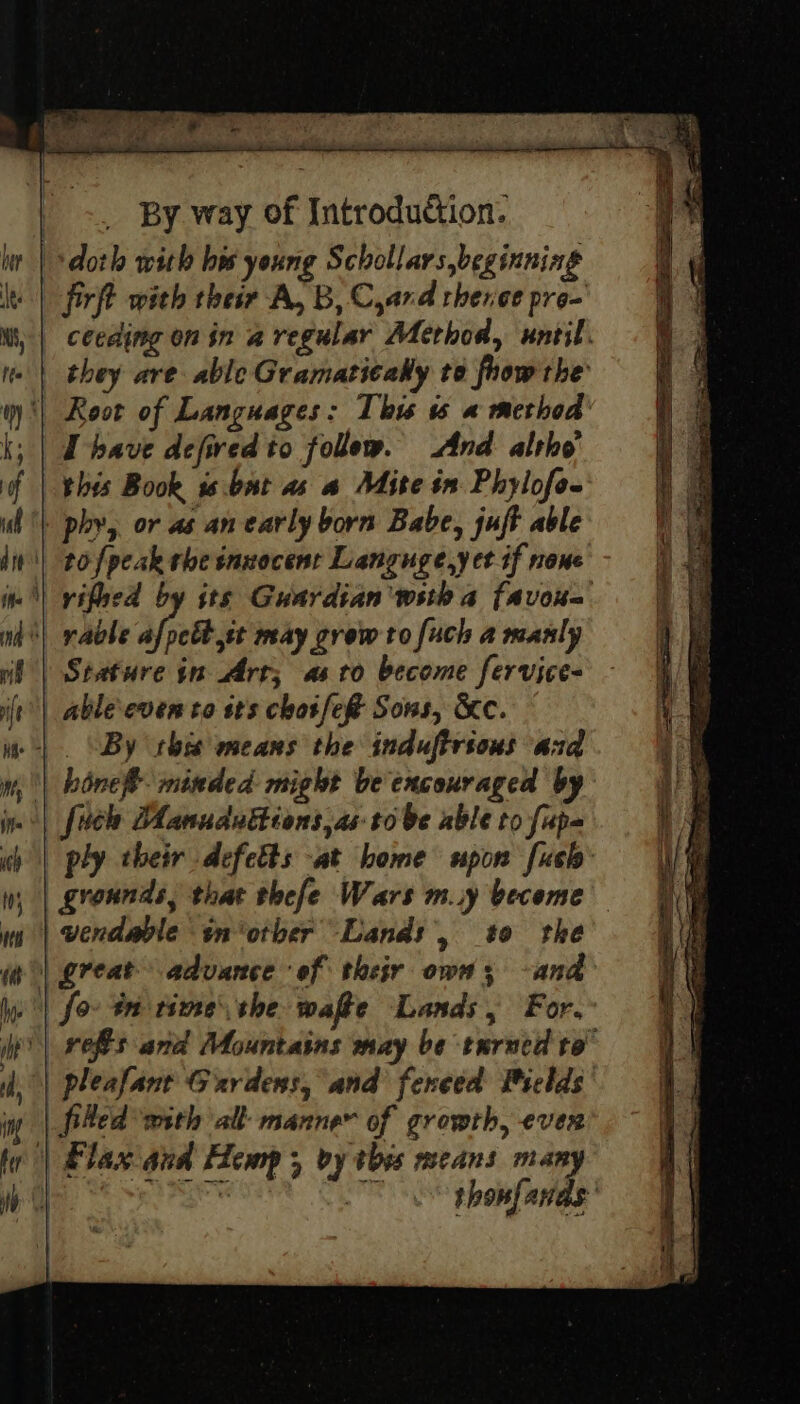 By way of Introduction.
doth with his young Schollars,beginning
firſt with their A, B, C,and thence pro-
ceeding on in a regular Method, until
they are able Gramatically to ſhow the
Root of Languages: This is a method
I have deſired to follow. And altho'
this Book is but as a Mite in Phyloſo-
phy, or as an early born Babe, juſt able
to ſpeak the innocent Languge,yet if nou-
riſhed by its Guardian with a favou-
rable aſpect,it may grow to ſuch a manly
Stature in Art; as to become ſervice-
able even to its choiſeſt Sons, &c.
By this means the induſtrious and
honeſt minded might be encouraged by
ſuch Manuductions,as to be able to ſup-
ply their defects at home upon ſuch
grounds, that theſe Wars may become
vendable in other Lands, to the
great advance of their own; and
ſo in time the waſte Lands, For.
reſts and Mountains may be turned to
pleaſant Gardens, and fenced Fields
filled with all manner of growth, even
Flax and Hemp; by this means many
thouſands